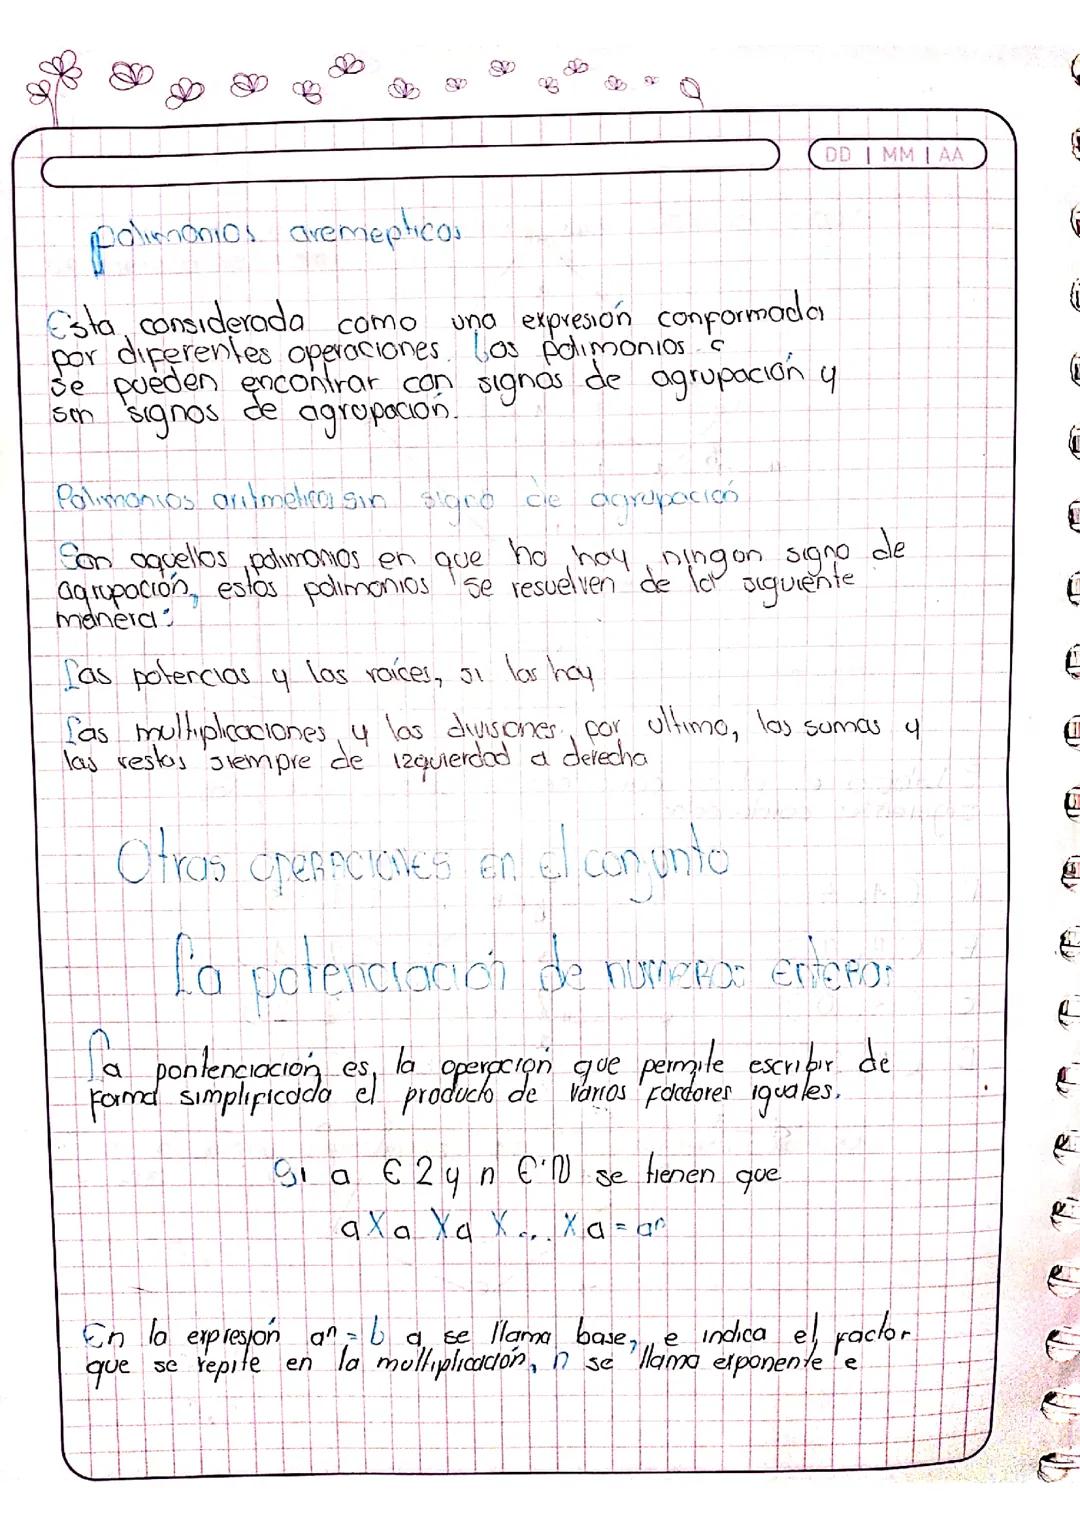 DD | MM | AA
polimonios aremepticos
Esta considerada como una expresión conformada
por diferentes operaciones. Los polimonios
se pueden encontrar con signos de agrupación y
sin signos de agrupación.
Polimonios aritmeticos sin signo de agrupación
Son aquellos polimonios en que no hay ningon signo de
agrupación, estos polimonios se resuelven de la siguiente
manera:
Las potencias y las raíces, si las hay
Las multiplicaciones y las divisiones, por ultimo, las sumas y
las restas siempre de izquierdad a derecha
Otras operaciones en el conjunto
La potenciación de numeros enteros
La pontenciación es, la operación que permite escribir de
forma simplificada el producto de varios factores iguales.
Si a € 2 y n € N se tienen que
a X a X a X ... X a = aⁿ
En la expresión aⁿ = b a se llama base, e indica el factor
que se repite en la multiplicación, n se llama exponente e